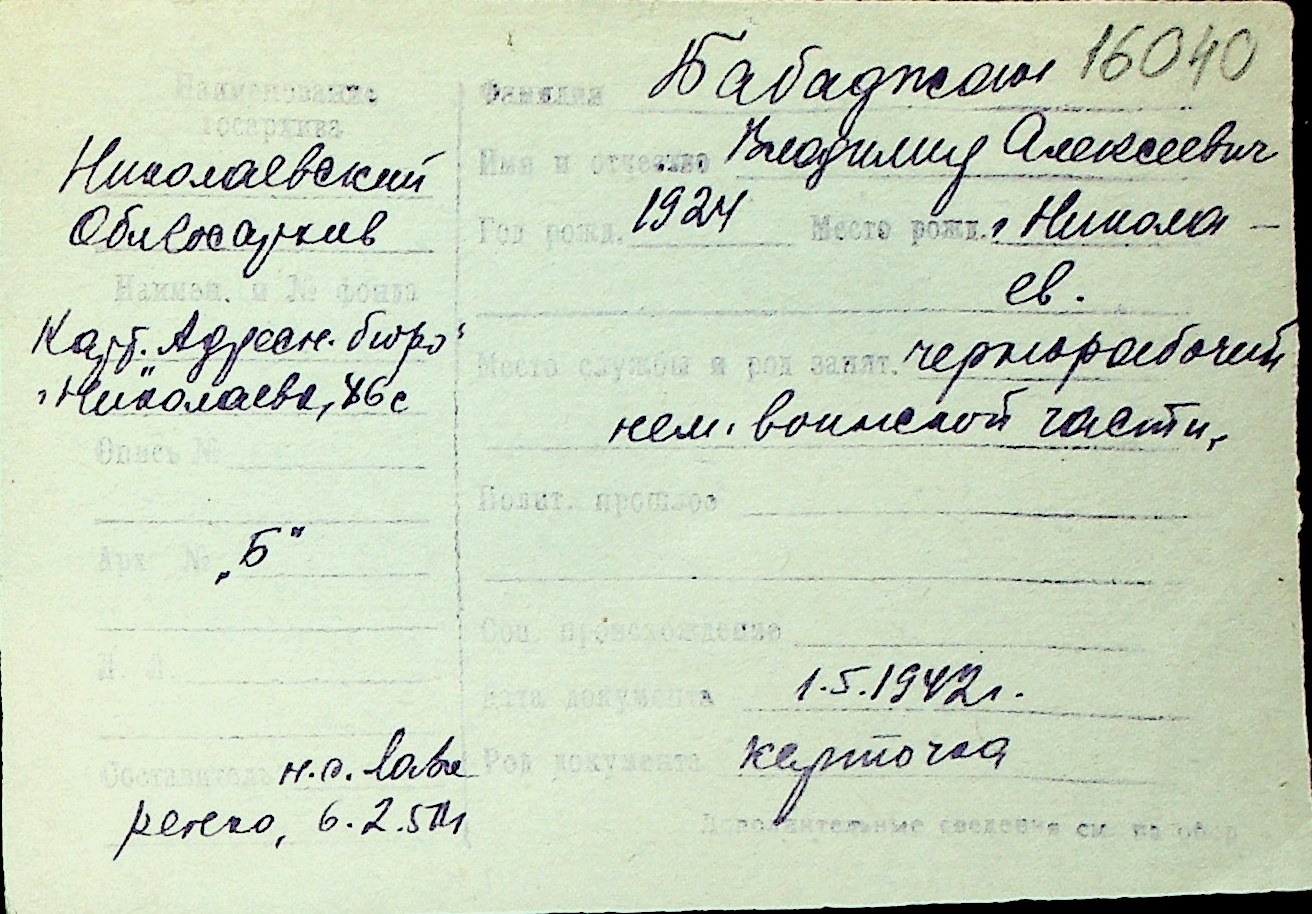 16040
Наименование
госархива
Николаевский
Облгосархив
Наимен. и № фонда
Карт. Адресн. бюро
г. Николаева,
Опись №
Арх. № „Б"
К. Л.
Составитель н.с.
6.2.51г
Фамилия Бабаджан
Имя и отчество Владимир Алексеевич
Год рожд. 1924 Место рожд. г Никола-
ев.
Место службы и род занят. чернорабочий
нем. воинской части,
Полит. прошлое
Соц. происхождение
Дата документа 1.5.1942г.
Род документа карточка
Дополнительные сведения см. на обор